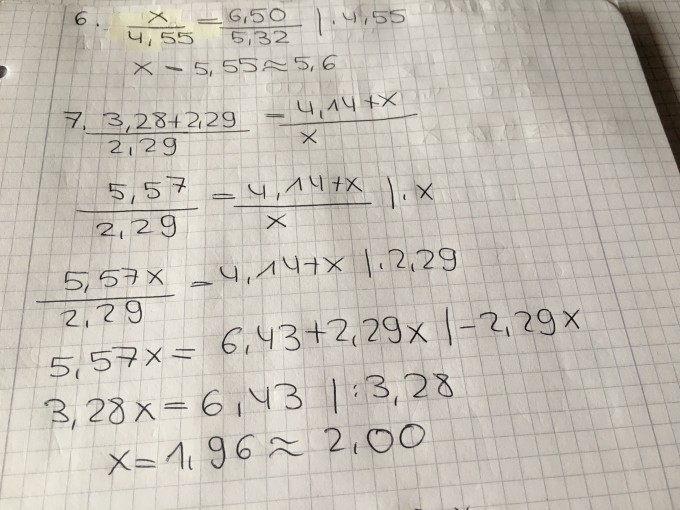 6. x/4,55 = 6,50/5,32 |·4,55
x - 5,55 ≈ 5,6
7. (3,28+2,29)/2,29 = (4,14+x)/x
5,57/2,29 = (4,14+x)/x |·x
5,57x/2,29 = 4,14+x |·2,29
5,57x = 6,43+2,29x |-2,29x
3,28x = 6,43 |:3,28
x = 1,96 ≈ 2,00